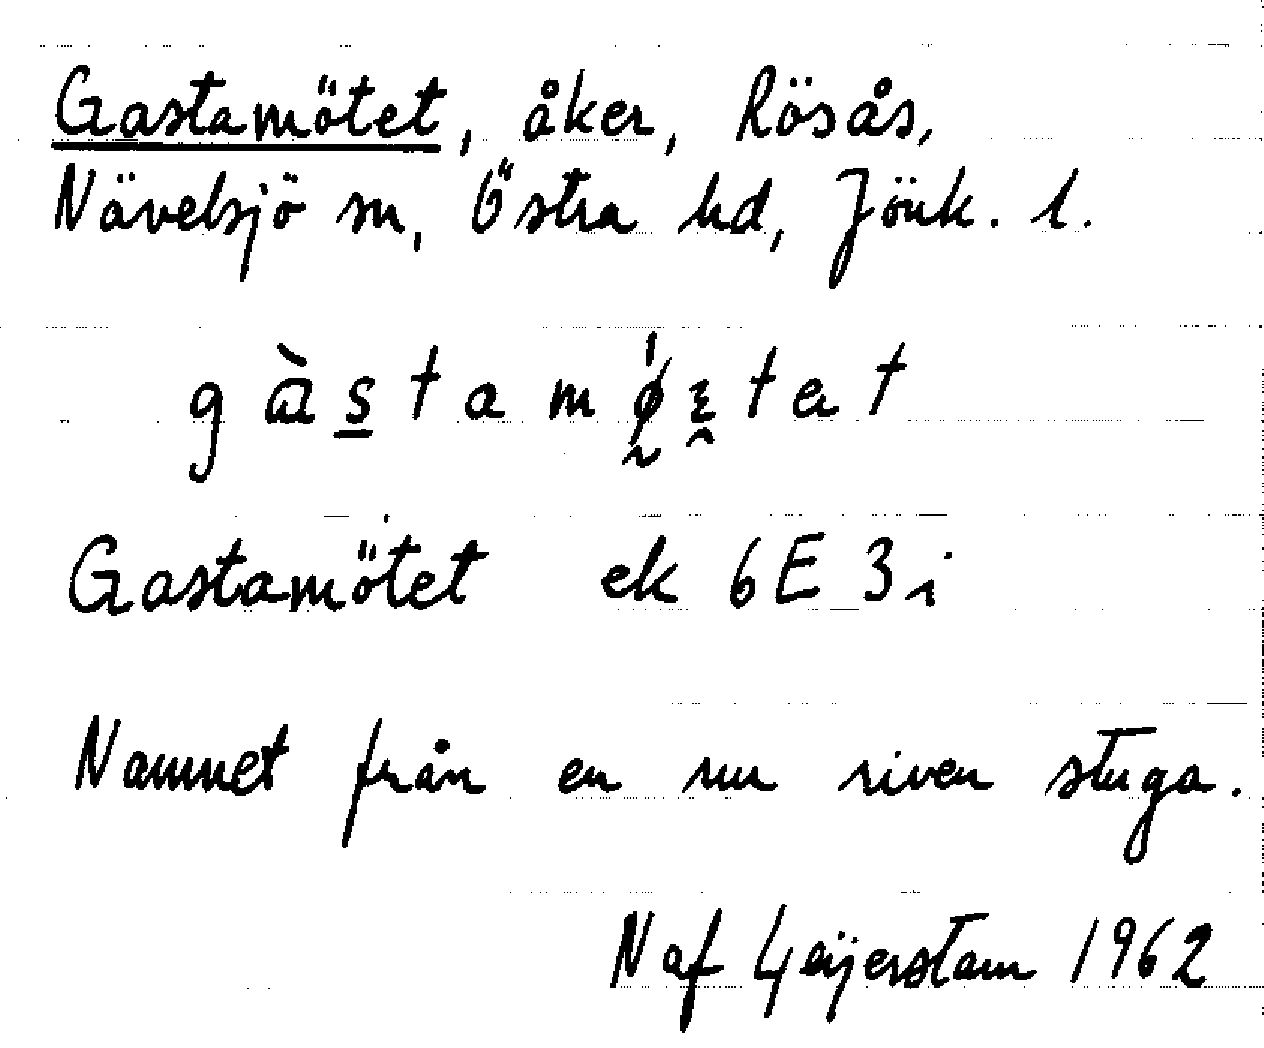 Gastamötet, åker, Rösås,
Nävelsjö sn, Östra hd, Jönk. l.
gàstamǿztet
Gastamötet ek 6E 3i
Namnet från en nu riven stuga.
N af Geijerstam 1962